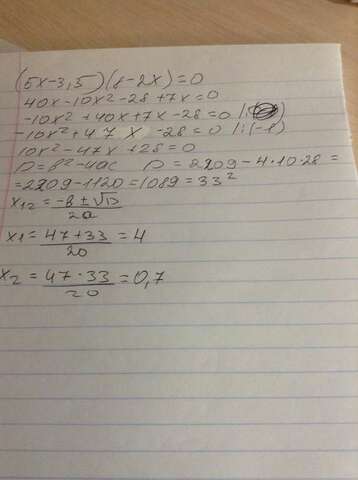 (5x-3,5)(8-2x)=0
40x-10x²-28+7x=0
-10x²+40x+7x-28=0 |:(
-10x²+47x-28=0 |:(-1)
10x²-47x+28=0
D=b²-4ac D=2209-4·10·28=
=2209-1120=1089=33²
x₁₂=-b±√D/2a
x₁=47+33/20=4
x₂=47·33/20=0,7